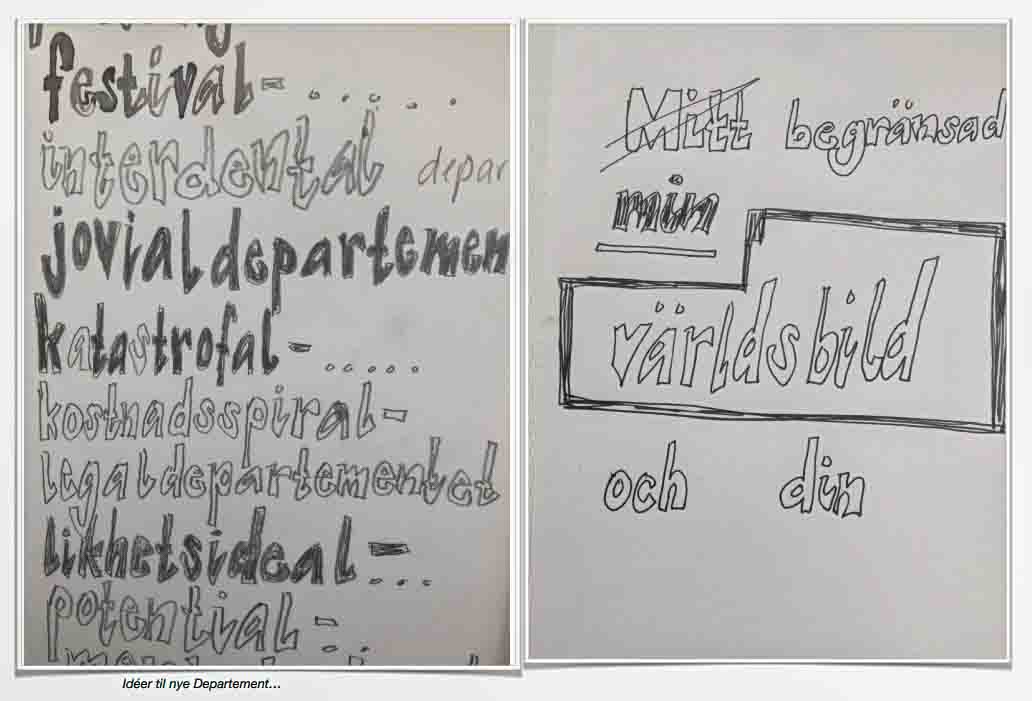 festival- . . . . .
interdental depar
jovialdepartemen
katastrofal- . . . . .
kostnadsspiral-
legaldepartementet
likhetsideal- . . .
potential-
Idéer til nye Departement...
Mitt begränsad
min
världsbild
och din